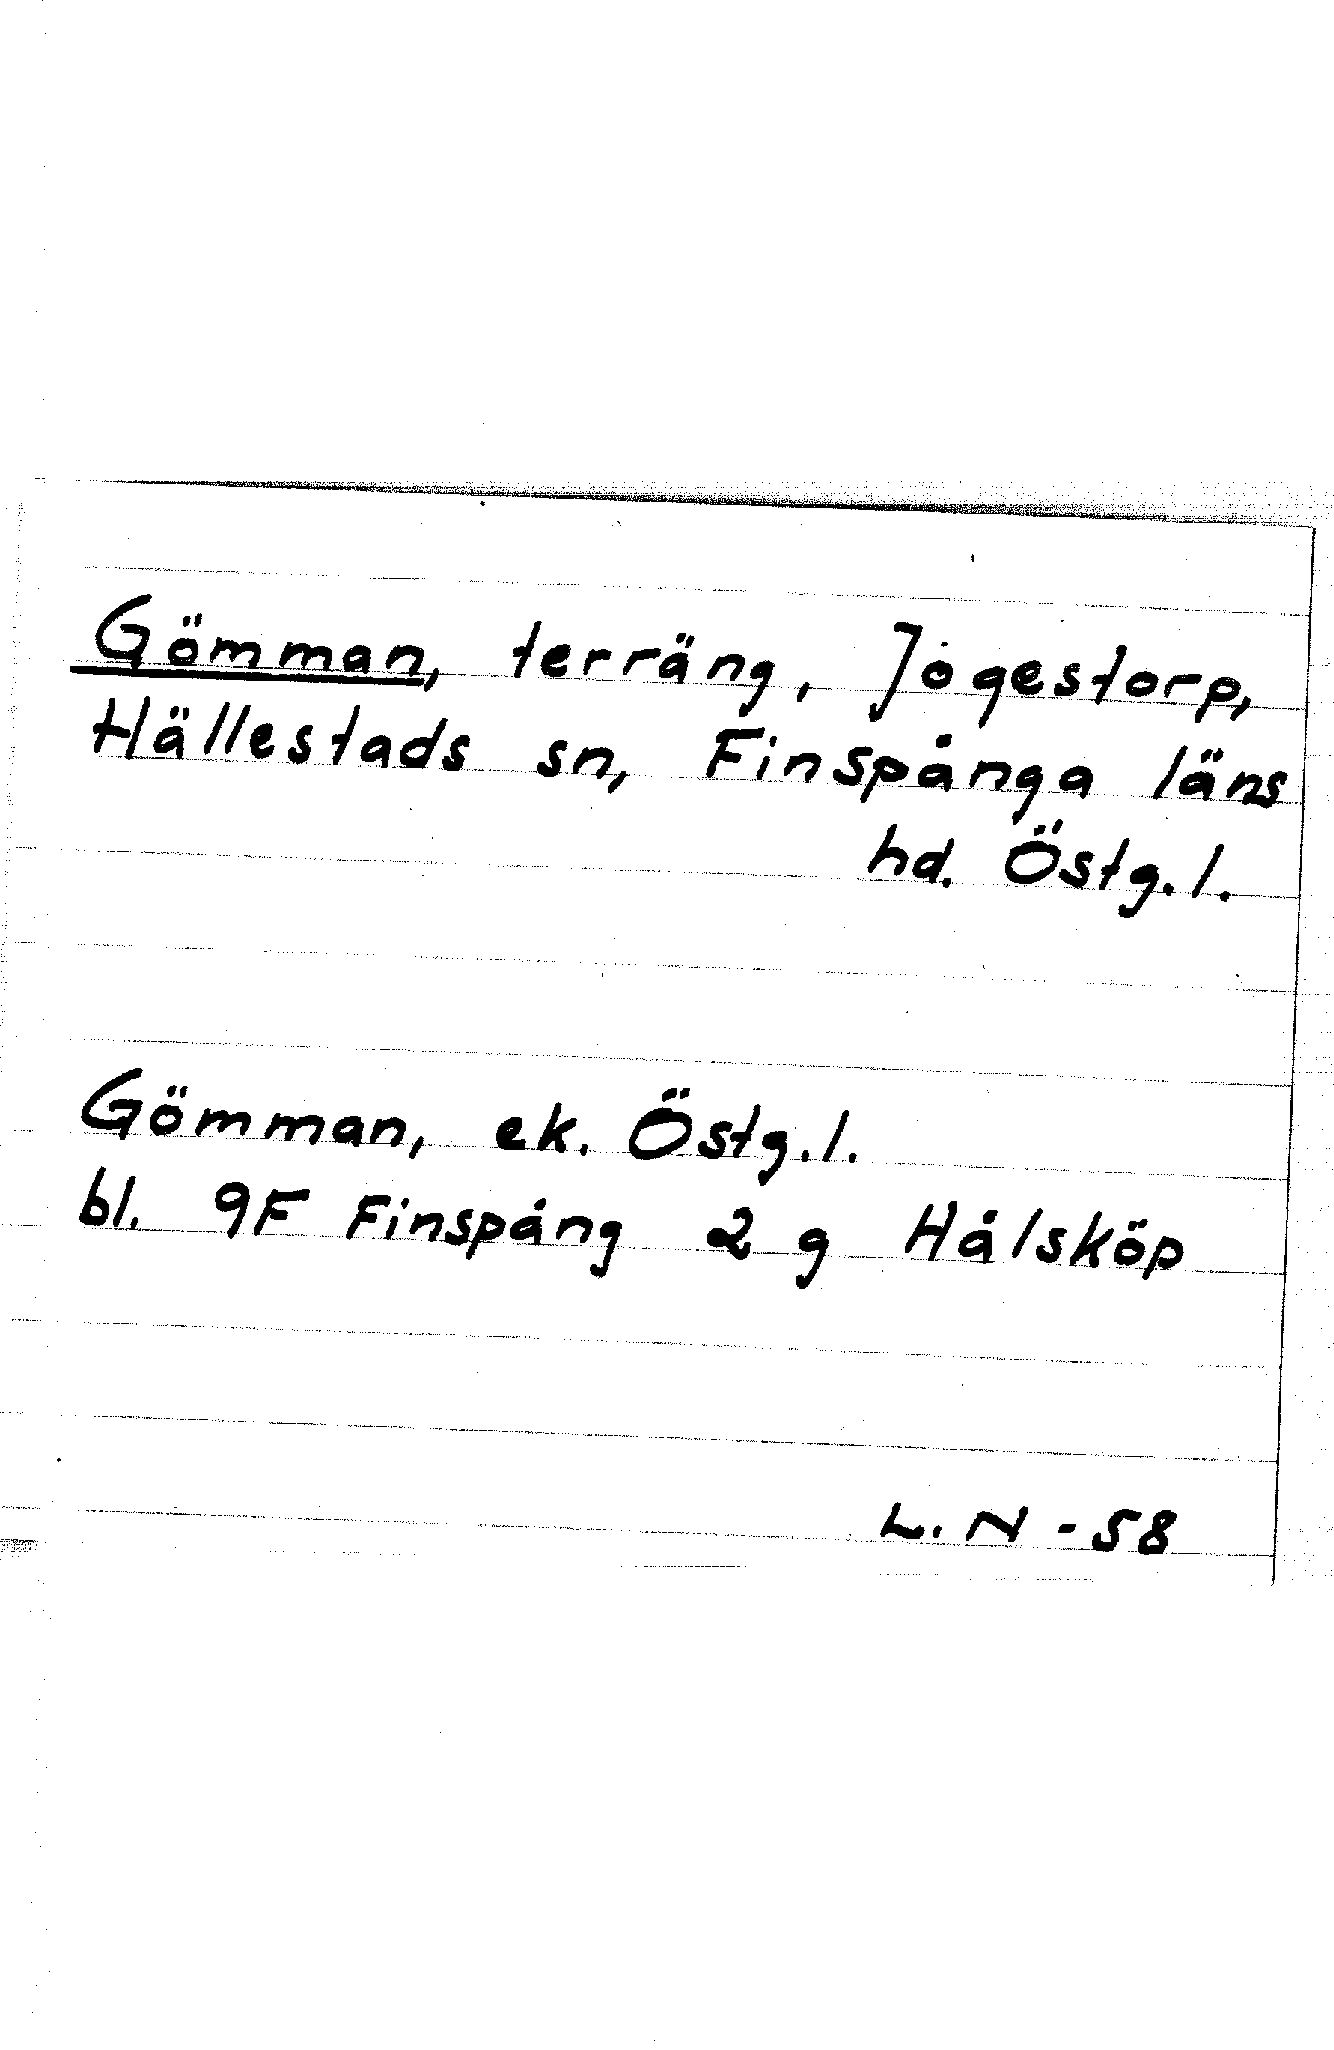 Gömman, terräng, Jogestorp,
Hällestads sn, Finspånga läns
hd. Östg.l.
Gömman, ek. Östg.l.
bl. 9F Finspång 2 g Hålsköp
L. N - 58